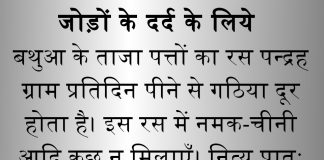 जोड़ों के दर्द के लिये
बथुआ के ताजा पत्तों का रस पन्द्रह
ग्राम प्रतिदिन पीने से गठिया दूर
होता है। इस रस में नमक-चीनी
आदि कुछ न मिलाएँ। नित्य प्रातः